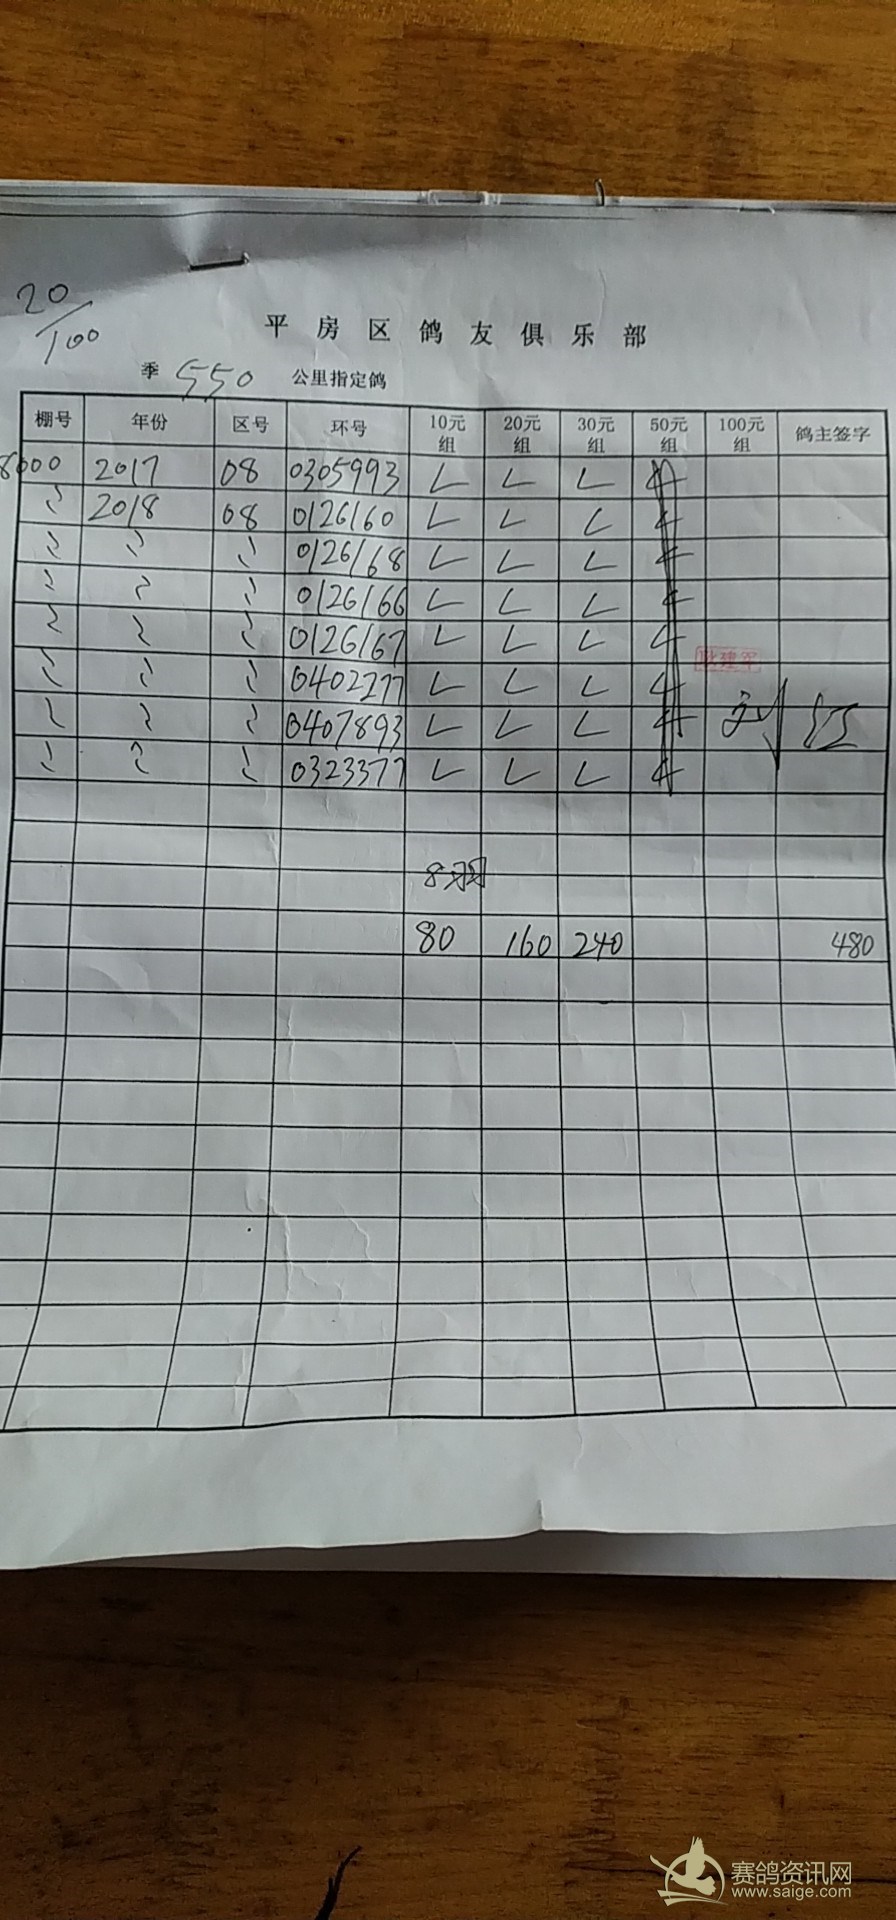 20/100
平房区鸽友俱乐部
季 550 公里指定鸽
棚号 年份 区号 环号 10元组 20元组 30元组 50元组 100元组 鸽主签字
8000 2017 08 0305993
2018 08 0126160
0126168
0126166
0126167
0402277
耿建军
0407893 刘红
0323377
8羽
80 160 240 480
赛鸽资讯网
www.saige.com